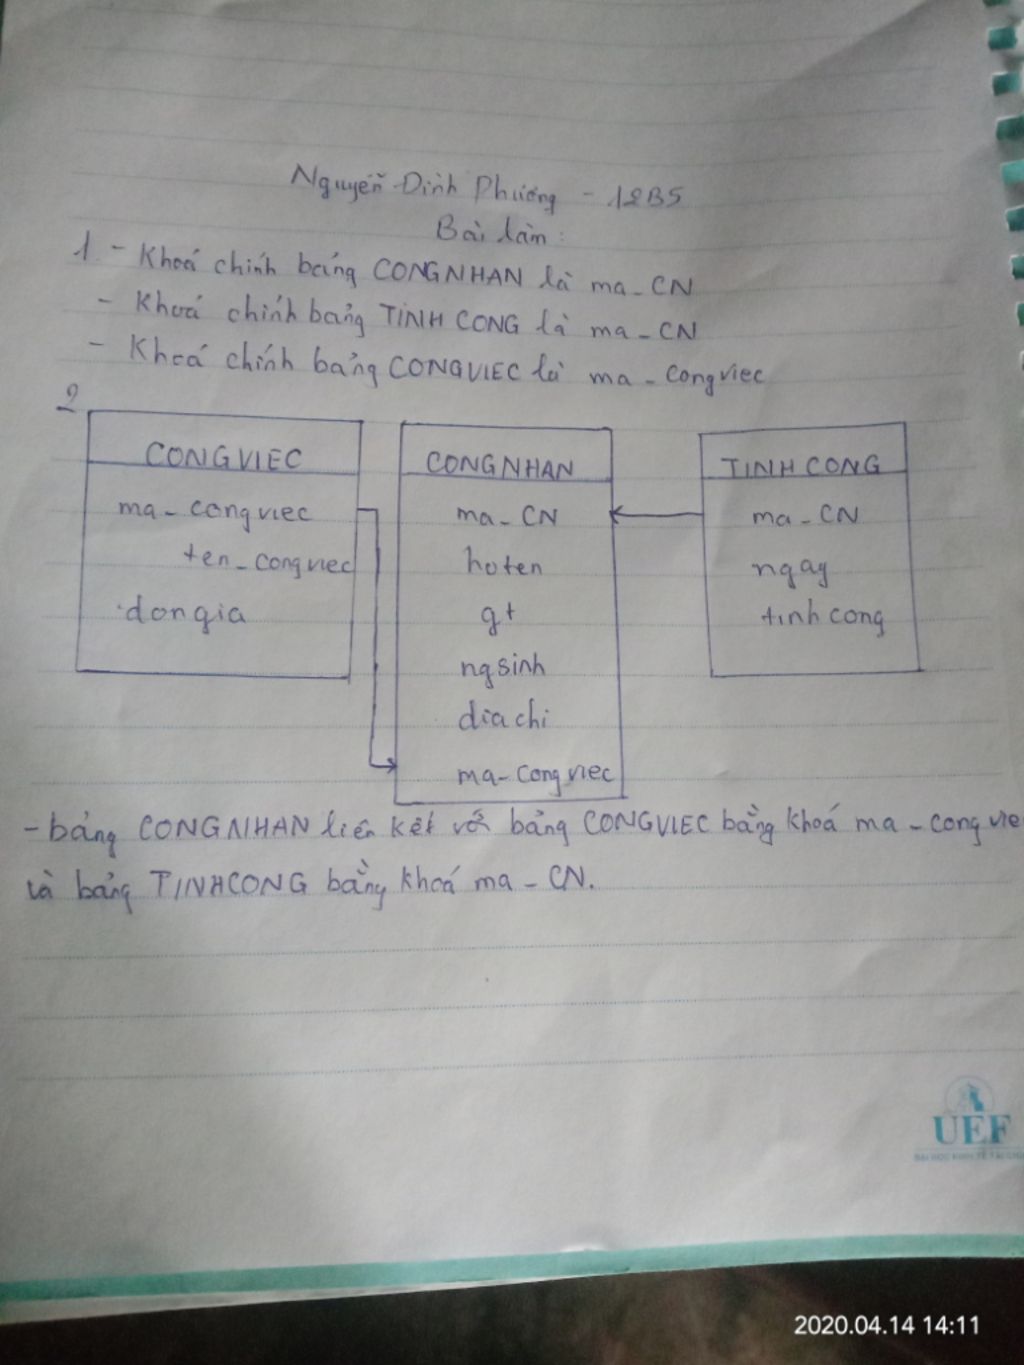 Nguyễn Đình Phương - 12B5
Bài làm:
1 - Khoá chính bảng CONGNHAN là ma_CN
- Khoá chính bảng TINHCONG là ma_CN
- Khoá chính bảng CONGVIEC là ma_congviec
2
CONGVIEC
ma_congviec
ten_congviec
dongia
CONGNHAN
ma_CN
hoten
gt
ngsinh
diachi
ma_congviec
TINHCONG
ma_CN
ngay
tinhcong
- bảng CONGNHAN liên kết với bảng CONGVIEC bằng khoá ma_congvie
và bảng TINHCONG bằng khoá ma_CN.
UEF
2020.04.14 14:11